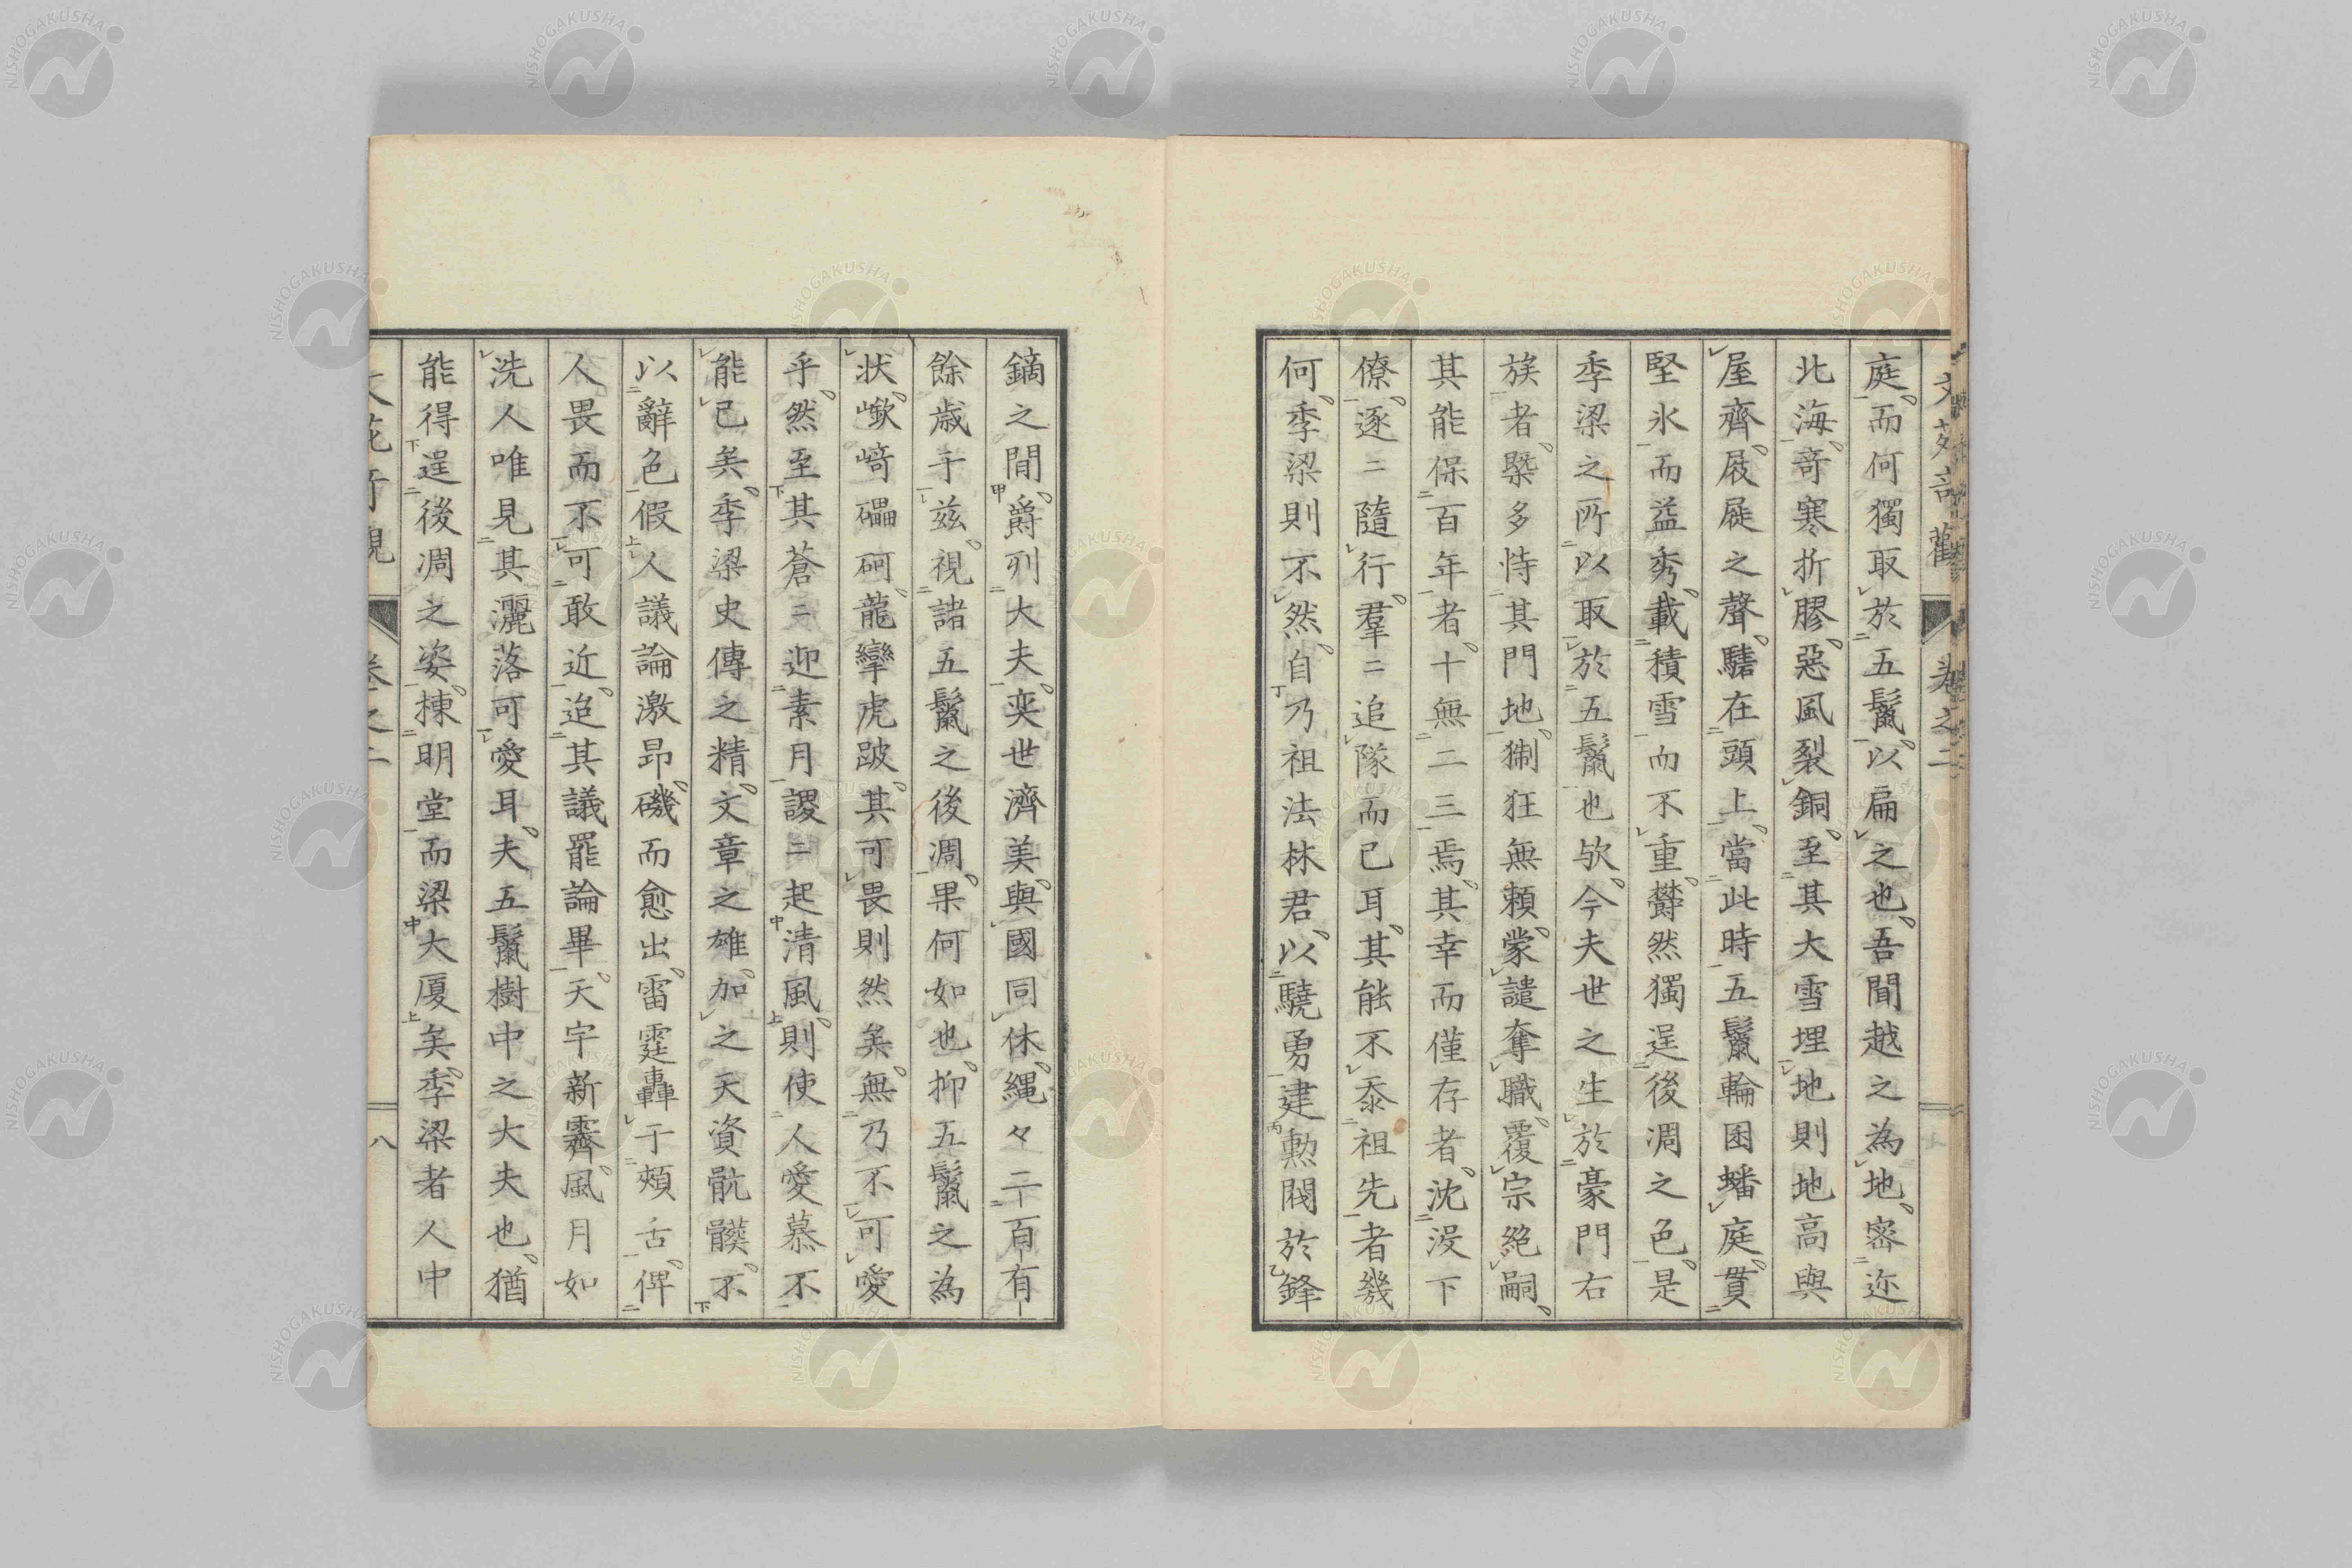 庭而何獨取於五鬣以扁之也吾聞越之為地密迩
北海竒寒折膠惡風裂銅至其大雪埋地則地高與
屋齊屐屣之聲驣在頭上當此時五鬣輪囷蟠庭貫
堅氷而益秀載積雪而不重欝然獨逞後凋之色是
季梁之所以取於五鬣也欤今夫世之生於豪門右
族者槩多恃其門地猘狂無頼蒙譴奪職覆宗絕嗣
其能保百年者十無二三焉其幸而僅存者沈没下
僚逐〻隨行羣〻追隊而已耳其能不忝祖先者幾
何季梁則不然自乃祖法林君以驍勇建勲閥於鋒
鏑之間爵列大夫奕世濟美與國同休繩々二百有
餘歳于兹視諸五鬣之後凋果何如也抑五鬣之為
状嶔﨑礧砢龍攣虎跛其可畏則然矣無乃不可愛
乎然至其蒼〻迎素月謖〻起清風則使人愛慕不
能已矣季梁史傳之精文章之雄加之天資骯髒不
以辭色假人議論激昂磯而愈出雷霆轟于頰舌俾
人畏而不可敢近迨其議罷論畢天宇新霽風月如
洗人唯見其灑落可愛耳夫五鬣樹中之大夫也猶
能得逞後凋之姿棟明堂而梁大厦矣季梁者人中
卷之二
八